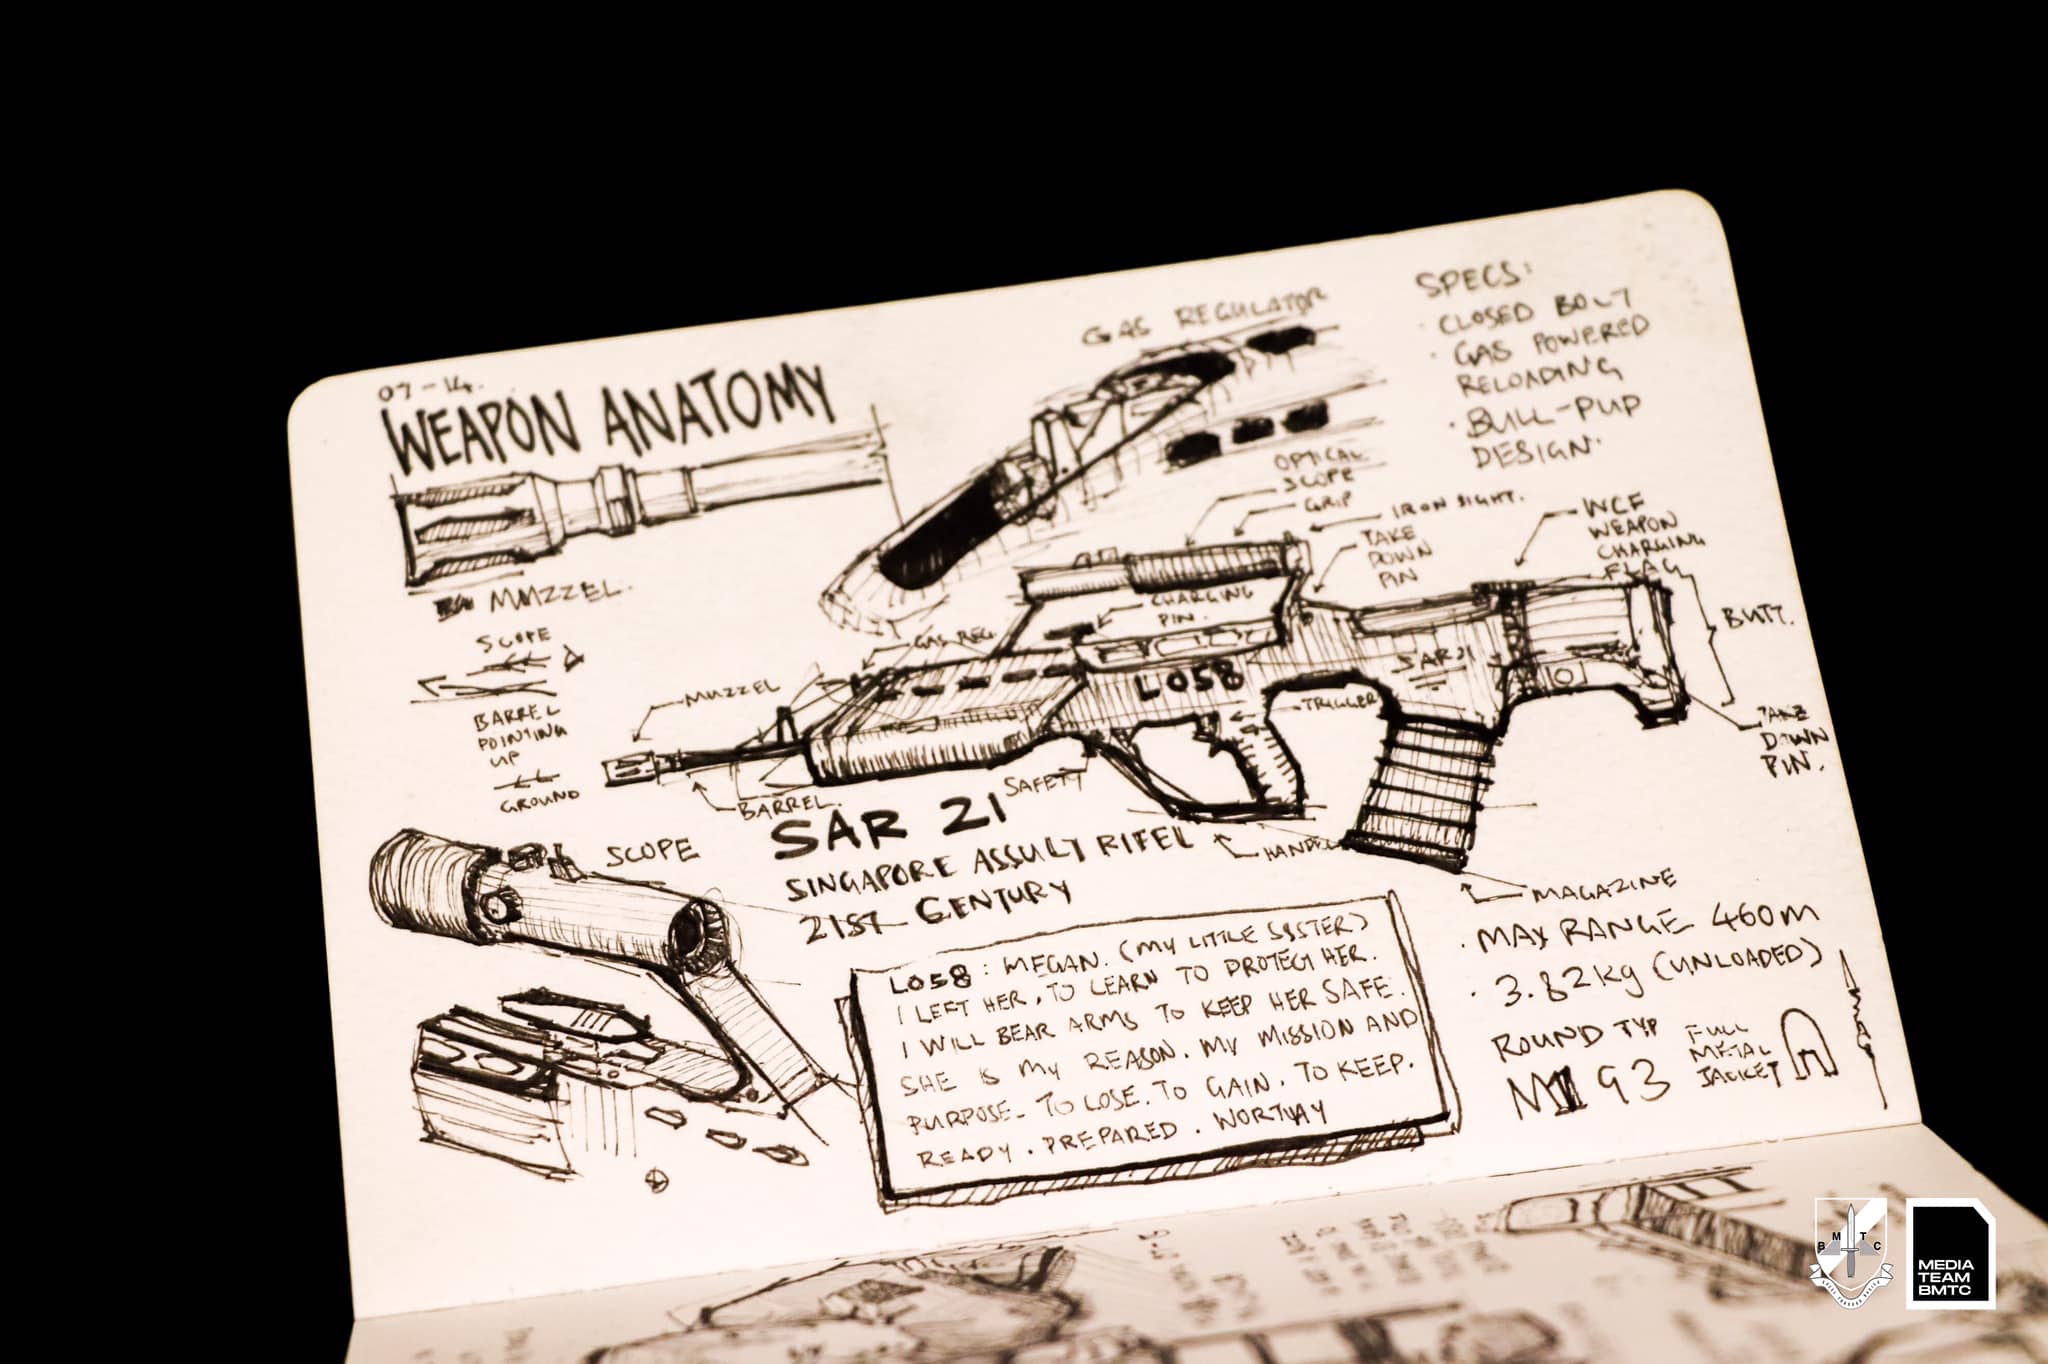 07-14.
WEAPON ANATOMY
MUZZEL.
GAS REGULATOR
SPECS:
· CLOSED BOLT
· GAS POWERED
RELOADING
· BULL-PUP
DESIGN.
OPTICAL
SCOPE
GRIP
IRON SIGHT.
TAKE
DOWN
PIN
WCF
WEAPON
CHARGING
FLAG
BUTT.
TAKE
DOWN
PIN.
CHARGING
PIN.
GAS REG.
SCOPE
BARREL
POINTING
UP
GROUND
MUZZEL
L058
SAR21
TRIGGER
BARREL.
SAFETY
SAR 21
SINGAPORE ASSULT RIFEL
21ST CENTURY
HANDEL
MAGAZINE
SCOPE
· MAX RANGE 460m
· 3.82kg (UNLOADED)
ROUND TYP
M193
FULL
METAL
JACKET
L058: MEGAN. (MY LITTLE SISTER)
I LEFT HER, TO LEARN TO PROTECT HER.
I WILL BEAR ARMS TO KEEP HER SAFE.
SHE IS MY REASON. MY MISSION AND
PURPOSE. TO LOSE. TO GAIN. TO KEEP.
READY. PREPARED.
BMTC
MEDIA
TEAM
BMTC